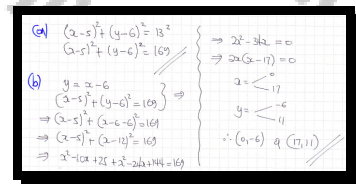 (a) (x-5)² + (y-6)² = 13²
(x-5)² + (y-6)² = 169
(b) y = x-6
(x-5)² + (y-6)² = 169 } ⇒
⇒ (x-5)² + (x-6-6)² = 169
⇒ (x-5)² + (x-12)² = 169
⇒ x² - 10x + 25 + x² - 24x + 144 = 169
⇒ 2x² - 34x = 0
⇒ 2x(x-17) = 0
x = < 0
17
y = < -6
11
∴ (0,-6) & (17,11)